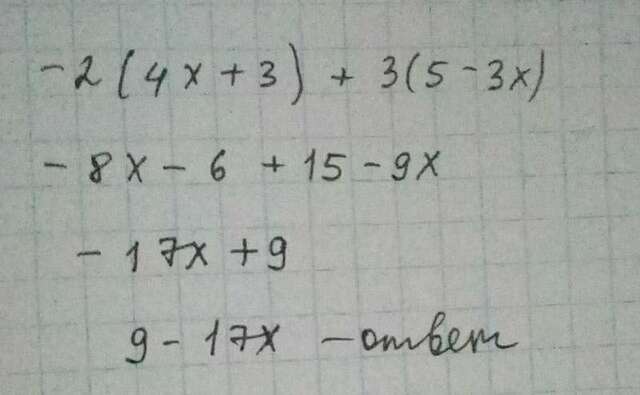 -2(4x+3) + 3(5-3x)
-8x-6 +15-9x
-17x+9
9-17x -ответ